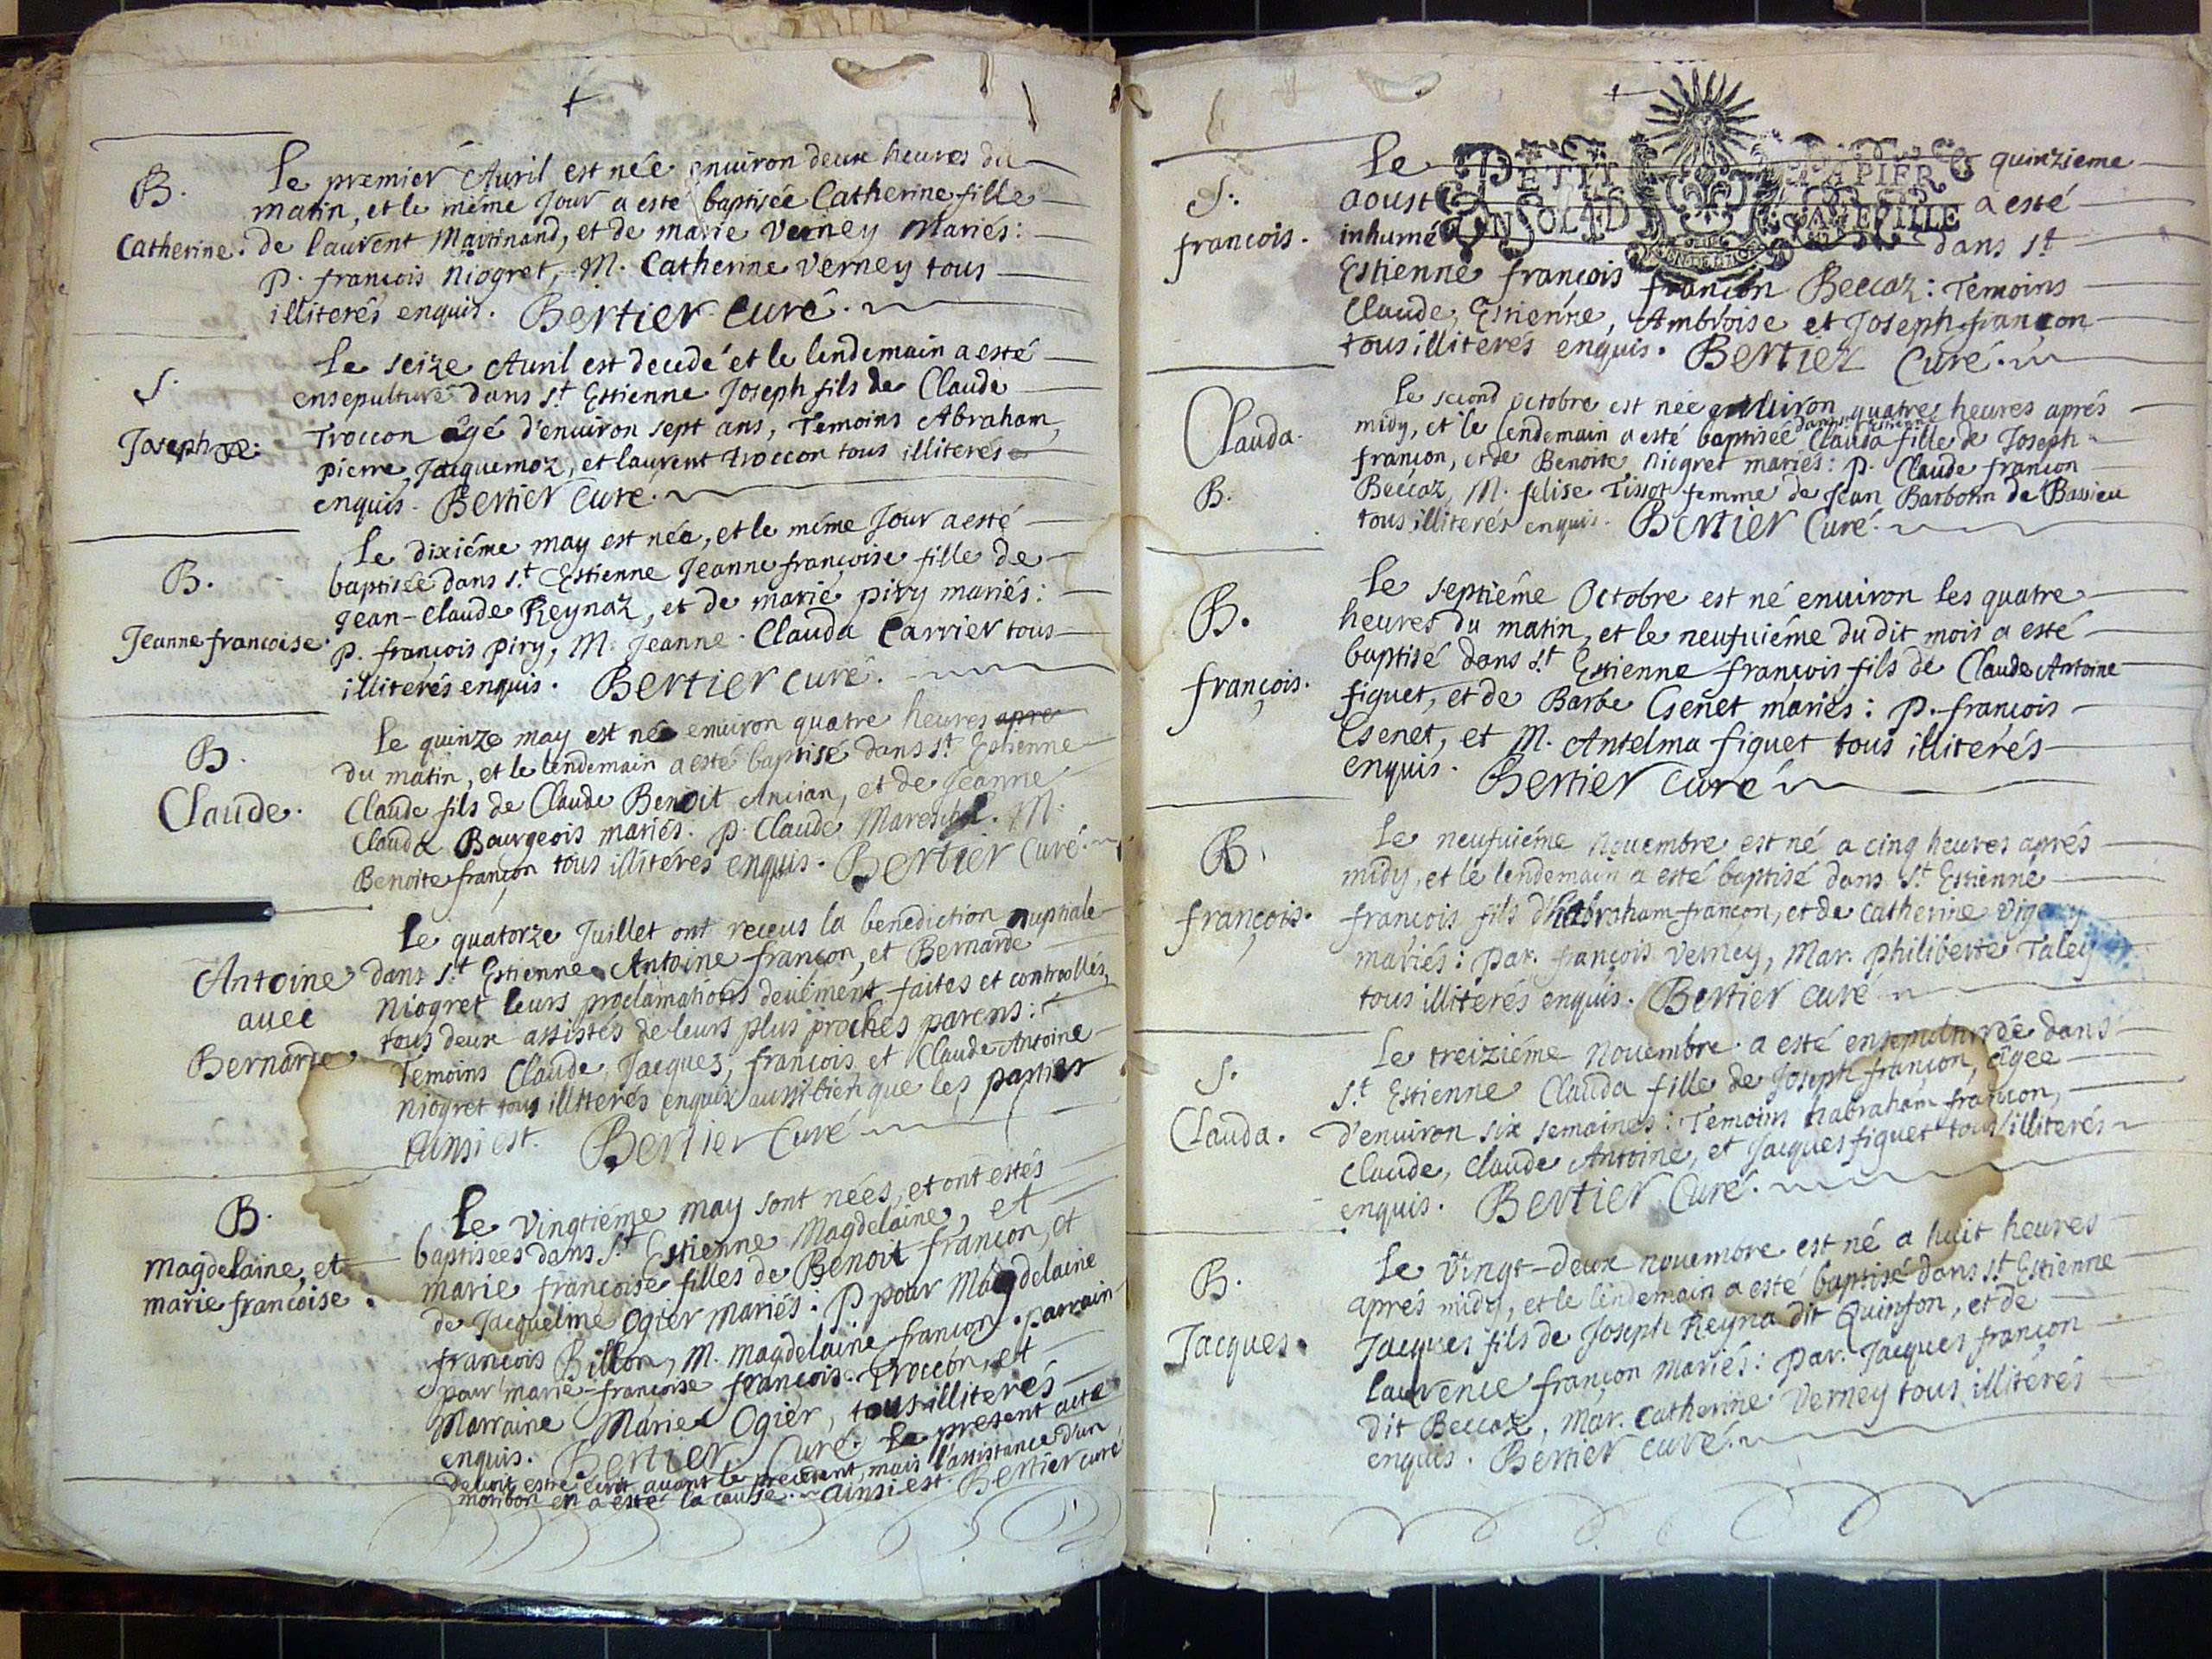 B.
Catherine.
Le premier Auril est née enuiron deux heures du
matin, et le méme Jour a esté baptisée Catherine fille
de laurent Martinand, et de marie Verney Mariés:
P. françois Niogret, M. Catherine Verney tous
illiterés enquis. Bertier Curé.
S.
Joseph
Le seize Auril est decedé et le lendemain a esté
ensepulturé dans St. Estienne Joseph fils de Claude
Troccon agé d'enuiron sept ans, Temoins Abraham,
pierre, Jacquemoz, et laurent Troccon tous illiterés
enquis. Bertier Curé.
B.
Jeanne francoise.
Le dixiéme may est née, et le méme Jour a esté
baptisée dans St. Estienne Jeanne françoise fille de
Jean-Claude Reynaz, et de marie piry mariés:
P. françois piry, M. Jeanne-Clauda Carrier tous
illiterés enquis. Bertier curé.
B.
Claude.
Le quinze may est né enuiron quatre heures apre
du matin, et le lendemain a esté baptisé dans St. Estienne
Claude fils de Claude Benoit Ancian, et de Jeanne
Clauda Bourgeois mariés. P. Claude Mareschal. M.
Benoite françon tous illitérés enquis. Bertier Curé.
Antoine
auec
Bernarde
Le quatorze Juillet ont reçeus la benediction nuptiale
dans St. Estienne Antoine françon, et Bernarde
Niogret leurs proclamations deuëment faites et controllés,
tous deux assistés de leurs plus proches parens:
Temoins Claude, Jacques, françois et Claude-Antoine
Niogret tous illiterés enquis aussi bien que les parties
Ainsi est. Bertier Curé
B.
Magdelaine, et
marie francoise.
Le Vingtiéme may sont nées, et ont estés
baptisées dans St. Estienne Magdelaine, et
marie françoise filles de Benoit françon, et
de Jacqueline Ogier Mariés: P pour Magdelaine
françois Billon, M. magdelaine françon. parrain
pour marie-françoise françois Troccon, et
Marraine Marie Ogier, tous illiterés
enquis. Bertier Curé. Le present acte
deuoit estre écrit auant le precedent, mais l'assistance d'un
moribon en a esté la cause. Ainsi est. Bertier curé
S.
françois.
PETIT PAPIER
Le quinzieme
aoust a esté
inhumé dans St.
Estienne françois françon Beccaz: Temoins
Claude, Estienne, Ambroise et Joseph françon
tous illiterés enquis. Bertier Curé.
Clauda.
B.
Le second Octobre est née enuiron quatre heures aprés
midy, et le lendemain a esté baptisée dans St. Estienne Clauda fille de Joseph
françon, et de Benoite Niogret mariés: P. Claude françon
Beccaz, M. felise Tissot femme de Jean Barborin de Bassieu
tous illiterés enquis. Bertier Curé.
B.
françois.
Le septiéme Octobre est né enuiron les quatre
heures du matin, et le neufuiéme du dit mois a esté
baptisé dans St. Estienne françois fils de Claude Antoine
figuet, et de Barbe Csenet mariés: P. françois
Csenet, et M. Antelma figuet tous illiterés
enquis. Bertier Curé
B.
françois.
Le neufuiéme Nouembre est né a cinq heures aprés
midy, et le lendemain a esté baptisé dans St. Estienne
françois fils d'habraham françon, et de Catherine
mariés: Par. françois Verney, Mar. philiberte Taley
tous illiterés enquis. Bertier curé
S.
Clauda.
Le treiziéme Nouembre a esté ensepulturée dans
St. Estienne Clauda fille de Joseph françon, âgée
d'enuiron six semaines: Temoins habraham françon,
Claude, Claude Antoine, et Jacques figuet tous illiterés
enquis. Bertier Curé.
B.
Jacques.
Le Vingt-deux nouembre est né a huit heures
aprés midy, et le lendemain a esté baptisé dans St. Estienne
Jacques fils de Joseph Reyna dit Quinson, et de
laurence françon Mariés: Par. Jacques françon
dit Beccaz, Mar. Catherine Verney tous illitérés
enquis. Bertier curé.